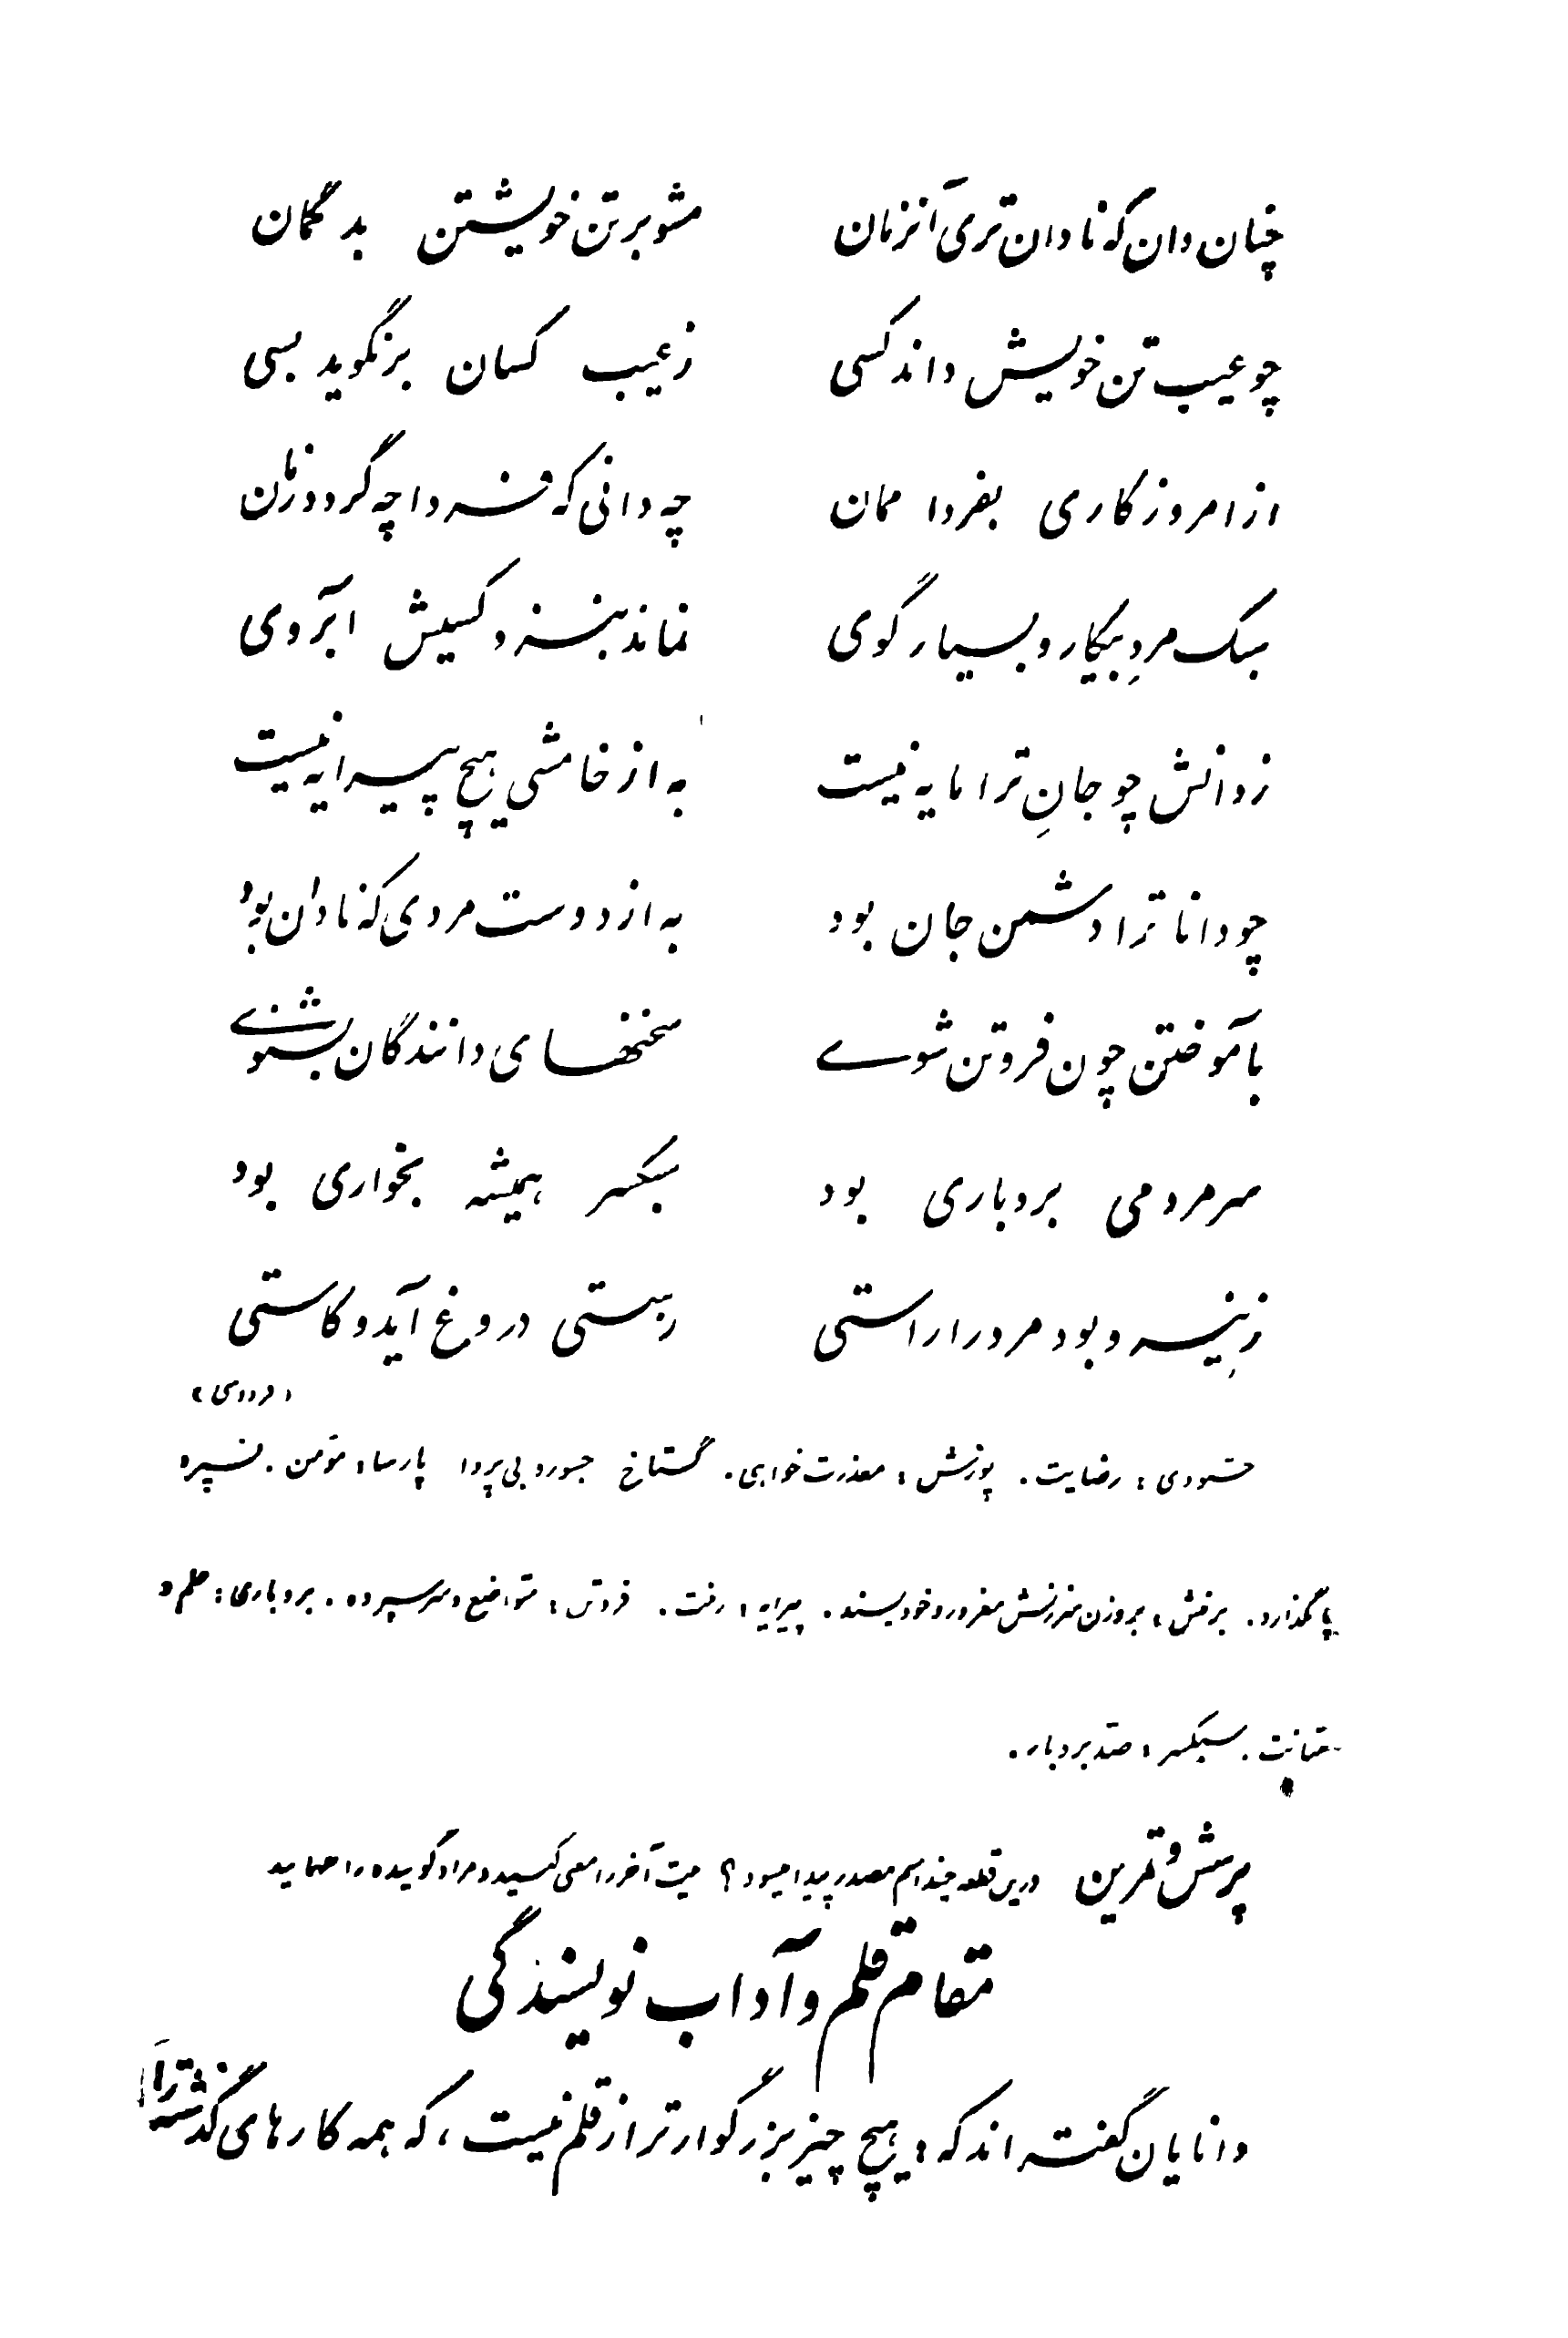 چنان دان که نادان تری آنزمان مشو بر تن خویشتن بد گمان
چو عیب تن خویش داند کسی ز عیب کسان بر نگوید بسی
از امروز کاری بفردا ممان چه دانی که فردا چه گردد زمان
سبک مردِ بیکار و بسیار گوی نماند بنزد کسیش آبروی
ز دانش چو جانِ ترا مایه نیست به از خامشی هیچ پیرایه نیست
چو دانا ترا دشمن جان بود به از دوست مردی که نادان بود
بآموختن چون فروتن شوے سخنهای دانندگان بشنوے
سر مردمی بردباری بود سبکسر همیشه بخواری بود
زِ نیرو بود مرد را راستی ز سستی دروغ آید و کاستی
(فردوسی)
خشنودی: رضایت. پوزش: معذرت خواهی. گستاخ جسور و بی پروا پارسا: مؤمن. نسپرد
پا نگذارد. برمنش: بر وزن سرزنش مغرور و خودپسند. پیرایه: زینت. فروتن: متواضع و سر سپرده. بردباری: حلم و
متانت. سبکسر: ضد بردبار.
پرسش و تمرین درین قطعه چند اسم مصدر پیدا میشود؟ بیت آخر را معنی کنید و مراد گوینده را
مقام قلم و آداب نویسندگی
دانایان گفته اند که: هیچ چیز بزرگوارتر از قلم نیست، که همه کارهای گذشته را